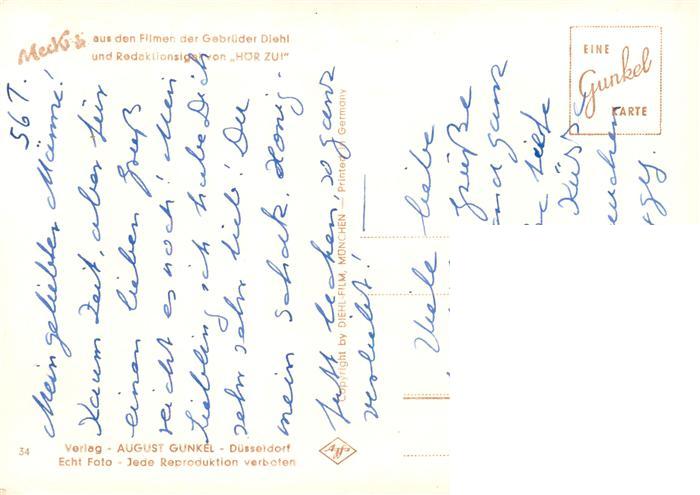 Mecki
aus den Filmen der Gebrüder Diehl
und Redaktionsigel von „HÖR ZU!"
EINE
Gunkel
KARTE
567.
Mein geliebter Männe!
Kaum Zeit, aber für
einen lieben Gruß
reicht es noch! Mein
Liebling ich habe Dich
sehr sehr lieb! Du
mein Schatz. Honig-
lecken, so ganz
verliebt!
Viele liebe
Grüße
und ganz
liebe
Copyright by DIEHL-FILM, MÜNCHEN — Printed in Germany
34
Verlag - AUGUST GUNKEL - Düsseldorf
Echt Foto - Jede Reproduktion verboten
Agfa